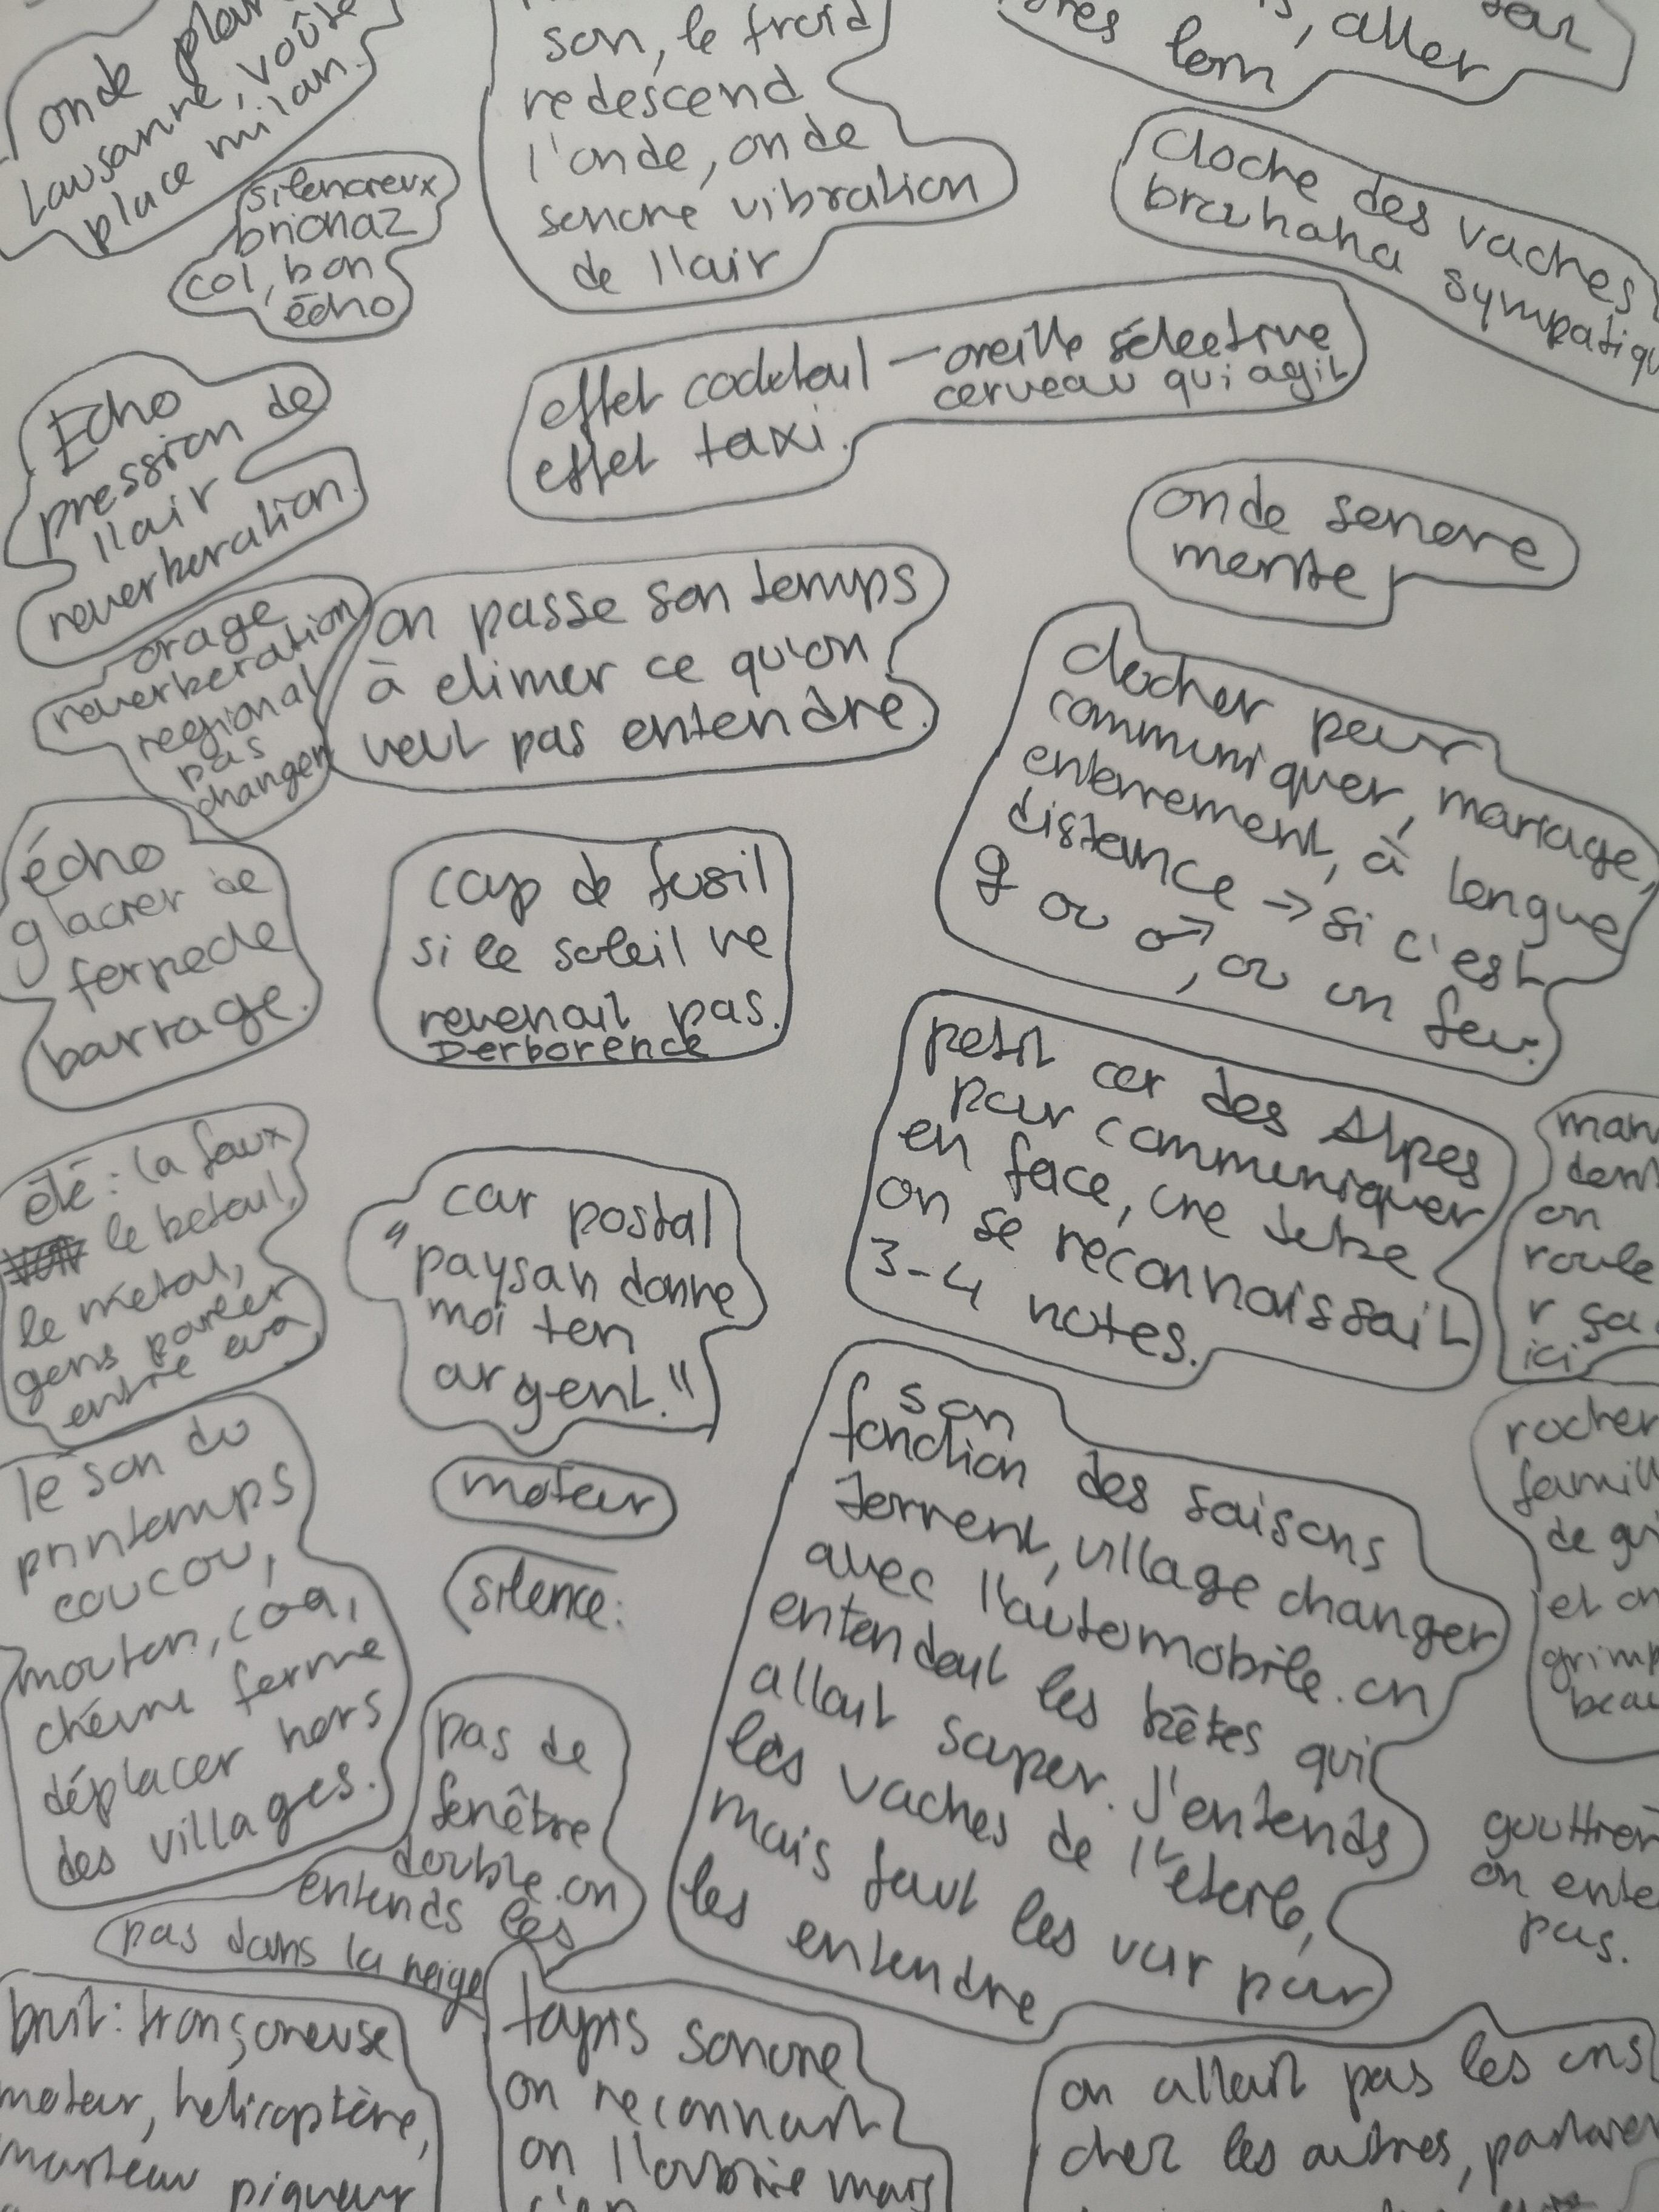 onde
Lausanne, voûte
place milan.
silencieux
brionaz
col, bon
écho
son, le froid
redescend
l'onde, onde
sonore vibration
de l'air
aller
loin
cloche des vaches
brouhaha sympatiqu
effet cocktail – oreille sélective
cerveau qui agit
effet taxi.
Echo
pression de
l'air
reverberation.
onde sonore
monte
orage
reverberation
regional
pas
changer
on passe son temps
à elimer ce qu'on
veut pas entendre.
clocher pour
communiquer, mariage,
enterrement, à longue
distance → si c'est
♀ ou ♂, ou un feu.
écho
glacier de
ferpecle
barrage.
cap de fusil
si le soleil ne
revenait pas.
Derborence
petit cor des Alpes
pour communiquer
en face, une tube
on se reconnaissait
3-4 notes.
man
dent
on
roule
r ça
ici
été: la faux
le betail,
le metal,
gens parler
entre eux
car postal
"paysan donne
moi ton
argent."
le son du
printemps
coucou,
mouton, coq,
chèvre ferme
déplacer hors
des villages.
moteur
silence:
son
fonction des saisons
torrent, village changer
avec l'automobile. on
entendait les bêtes qui
allait
les vaches de l'étable,
mais faut les voir pour
les entendre
rocher
famill
de gri
et on
grimp
beau
pas de
fenêtre
double. on
entends les
pas dans la neige
gouttier
on ente
pas.
bruit: tronçoneuse
moteur, helicoptère,
marteau piqueur
tapis sonore
on reconnait
on l'oublie mais
on allait pas les uns
chez les autres,